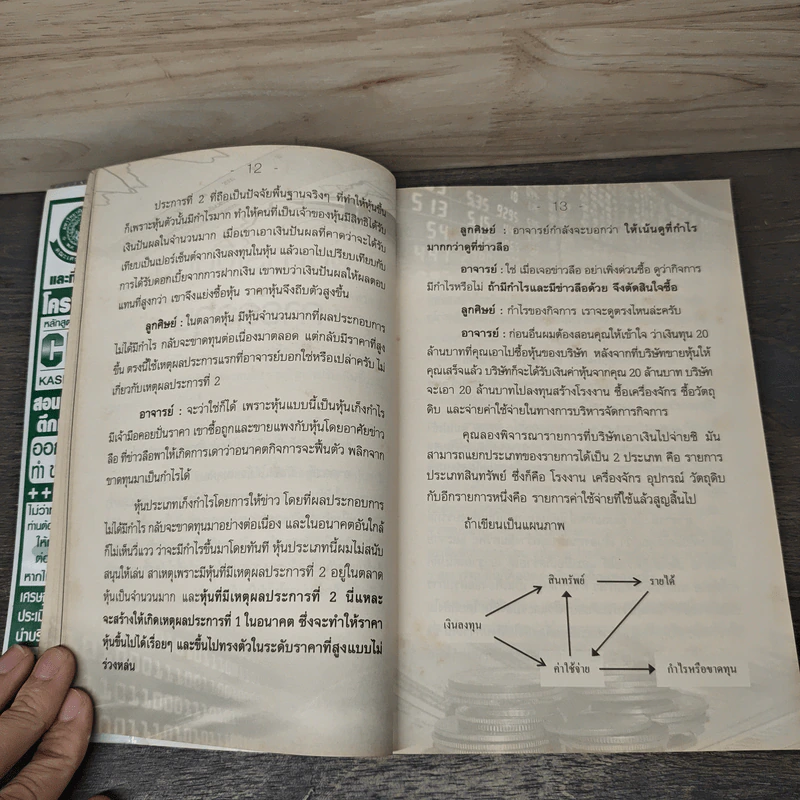 และที่
โคร
หลักสูต
C
KASI
สอน
ตึก
ออก
ทำ
++
ไม่ว่า
ท่านต้อ
ให้
ต่อ
หากใ
เศรษฐ
ประเมิ
นำบริ
- 12 -
ประการที่ 2 ที่ถือเป็นปัจจัยพื้นฐานจริงๆ ที่ทำให้หุ้นขึ้น
ก็เพราะหุ้นตัวนั้นมีกำไรมาก ทำให้คนที่เป็นเจ้าของหุ้นมีสิทธิได้รับ
เงินปันผลในจำนวนมาก เมื่อเขาเอาเงินปันผลที่คาดว่าจะได้รับ
เทียบเป็นเปอร์เซ็นต์จากเงินลงทุนในหุ้น แล้วเอาไปเปรียบเทียบกับ
การได้รับดอกเบี้ยจากการฝากเงิน เขาพบว่าเงินปันผลให้ผลตอบ
แทนที่สูงกว่า เขาจึงแย่งซื้อหุ้น ราคาหุ้นจึงถีบตัวสูงขึ้น
ลูกศิษย์ : ในตลาดหุ้น มีหุ้นจำนวนมากที่ผลประกอบการ
ไม่ได้มีกำไร กลับจะขาดทุนต่อเนื่องมาตลอด แต่กลับมีราคาที่สูง
ขึ้น ตรงนี้ใช้เหตุผลประการแรกที่อาจารย์บอกใช่หรือเปล่าครับ ไม่
เกี่ยวกับเหตุผลประการที่ 2
อาจารย์ : จะว่าใช่ก็ได้ เพราะหุ้นแบบนี้เป็นหุ้นเก็งกำไร
มีเจ้ามือคอยปั่นราคา เขาซื้อถูกและขายแพงกับหุ้นโดยอาศัยข่าว
ลือ ที่ข่าวลือพาให้เกิดการเดาว่าอนาคตกิจการจะฟื้นตัว พลิกจาก
ขาดทุนมาเป็นกำไรได้
หุ้นประเภทเก็งกำไรโดยการให้ข่าว โดยที่ผลประกอบการ
ไม่ได้มีกำไร กลับจะขาดทุนมาอย่างต่อเนื่อง และในอนาคตอันใกล้
ก็ไม่เห็นวี่แวว ว่าจะมีกำไรขึ้นมาโดยทันที หุ้นประเภทนี้ผมไม่สนับ
สนุนให้เล่น สาเหตุเพราะมีหุ้นที่มีเหตุผลประการที่ 2 อยู่ในตลาด
หุ้นเป็นจำนวนมาก และหุ้นที่มีเหตุผลประการที่ 2 นี่แหละ
จะสร้างให้เกิดเหตุผลประการที่ 1 ในอนาคต ซึ่งจะทำให้ราคา
หุ้นขึ้นไปได้เรื่อยๆ และขึ้นไปทรงตัวในระดับราคาที่สูงแบบไม่
ร่วงหล่น
- 13 -
ลูกศิษย์ : อาจารย์กำลังจะบอกว่า ให้เน้นดูที่กำไร
มากกว่าดูที่ข่าวลือ
อาจารย์ : ใช่ เมื่อเจอข่าวลือ อย่าเพิ่งด่วนซื้อ ดูว่ากิจการ
มีกำไรหรือไม่ ถ้ามีกำไรและมีข่าวลือด้วย จึงตัดสินใจซื้อ
ลูกศิษย์ : กำไรของกิจการ เราจะดูตรงไหนล่ะครับ
อาจารย์ : ก่อนอื่นผมต้องสอนคุณให้เข้าใจ ว่าเงินทุน 20
ล้านบาทที่คุณเอาไปซื้อหุ้นของบริษัท หลังจากที่บริษัทขายหุ้นให้
คุณเสร็จแล้ว บริษัทก็จะได้รับเงินค่าหุ้นจากคุณ 20 ล้านบาท บริษัท
จะเอา 20 ล้านบาทไปลงทุนสร้างโรงงาน ซื้อเครื่องจักร ซื้อวัตถุ
ดิบ และจ่ายค่าใช้จ่ายในทางการบริหารจัดการกิจการ
คุณลองพิจารณารายการที่บริษัทเอาเงินไปจ่ายซิ มัน
สามารถแยกประเภทของรายการได้เป็น 2 ประเภท คือ รายการ
ประเภทสินทรัพย์ ซึ่งก็คือ โรงงาน เครื่องจักร อุปกรณ์ วัตถุดิบ
กับอีกรายการหนึ่งคือ รายการค่าใช้จ่ายที่ใช้แล้วสูญสิ้นไป
ถ้าเขียนเป็นแผนภาพ
สินทรัพย์ รายได้
เงินลงทุน
ค่าใช้จ่าย กำไรหรือขาดทุน